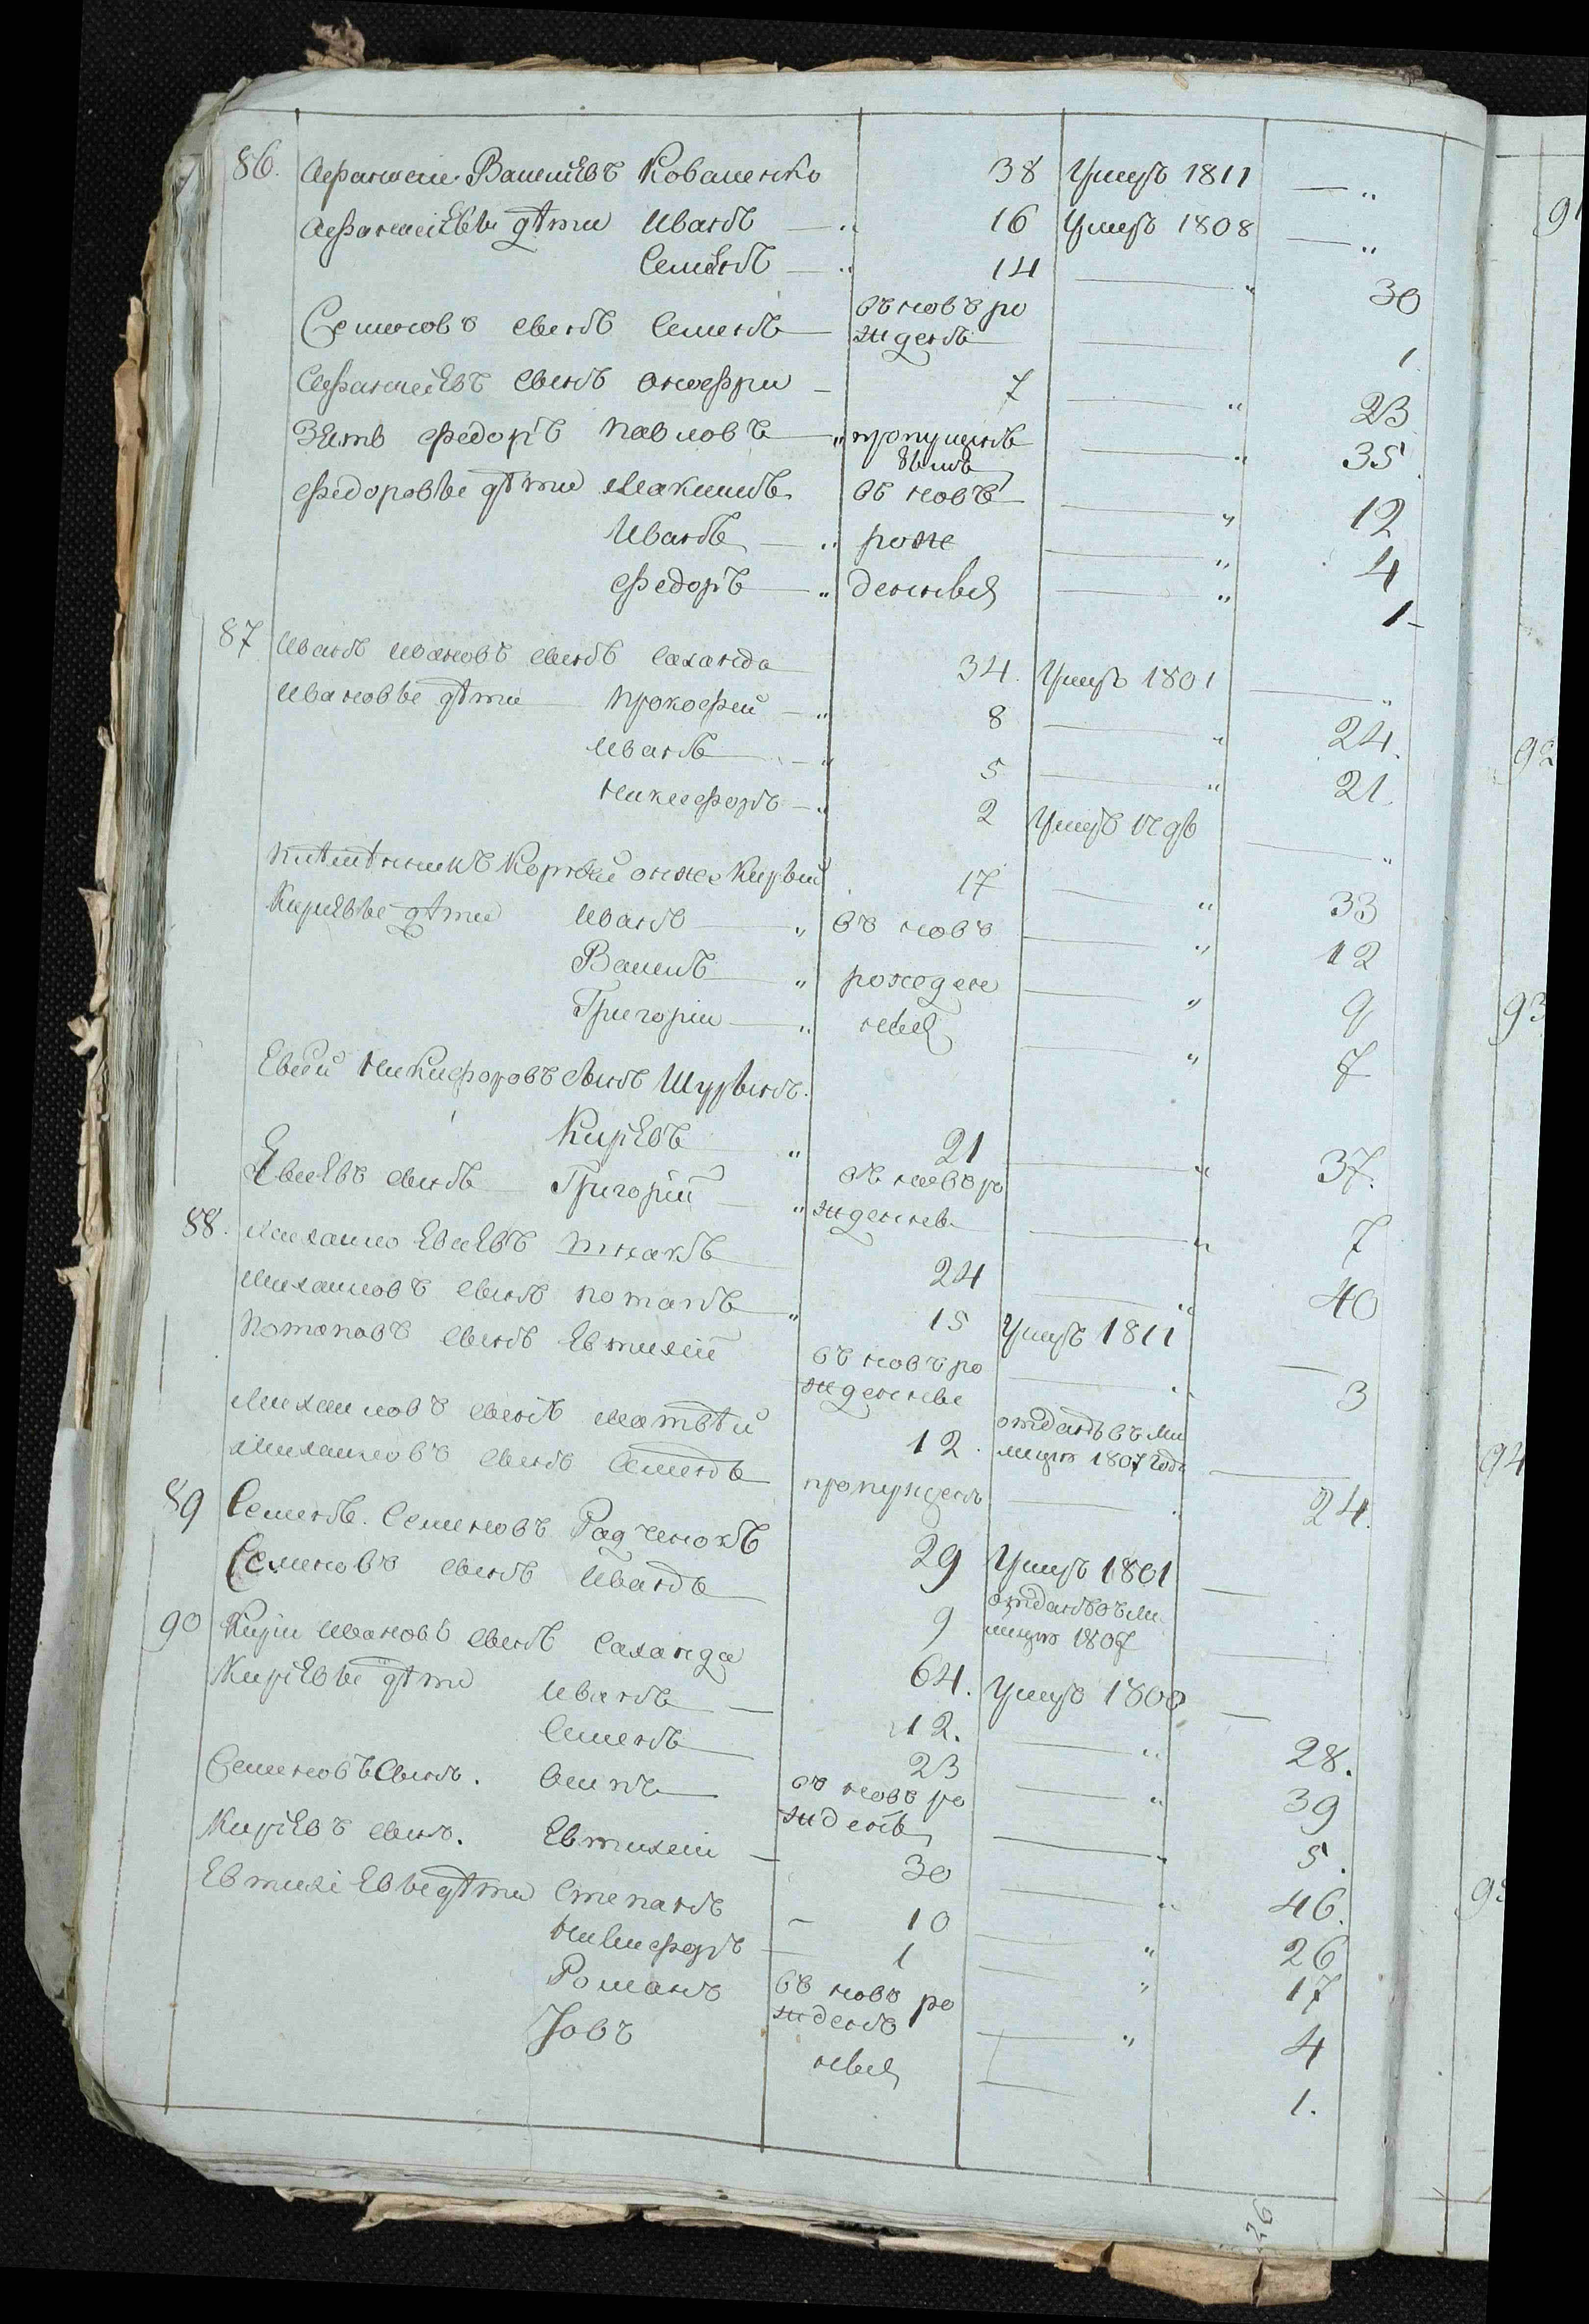 86. Афанасеи Василиевъ Коваленко 38 Умеръ 1811 — „
Афанасиевы дѣти Иванъ — „ 16 Умеръ 1808 — „
Семенъ — „ 14 — „ 30
Семеновъ сынъ Семенъ — въ новъ рожденъ — 1
Афанасиевъ сынъ Онофри — 7 — „ 23
Зять Федоръ Павловъ — „ пропущенъ былъ — „ 35
Федоровые дѣти Максимъ въ новъ — „ 12
Иванъ — „ рож — „ 4
Федоръ — „ денныя — „ 1
87 Иванъ Ивановъ сынъ Саханда 34. Умеръ 1801 — „
Ивановые дѣти Прокофий — „ 8 — „ 24.
Иванъ — „ 5 — „ 21.
Никифоръ — „ 2 Умеръ — „
Корнѣй онже Кирѣй 17 — „ 33
Кириевые дѣти Иванъ — „ въ новъ — „ 12
Василь — „ рожден — „ 9
Григории — „ ныя — „ 7
Евсей Никифоровъ сынъ
Кириевъ „ 21 — „ 37.
Евсиевъ сынъ Григорий — „ въ новъ рожденные — „ 7
88. Михаило Евсиевъ Ткачь 24 — „ 40
Михаиловъ сынъ Потапъ — „ 15 Умеръ 1811 —
Потаповъ сынъ Евтихий въ новъ рожденные — „ 3
Михаиловъ сынъ Матвѣй 12. отданъ въ милицию 1807 года —
Михаиловъ сынъ Семенъ пропущенъ — „ 24.
89 Семенъ Семеновъ Радченокъ 29 Умеръ 1801 —
Семеновъ сынъ Иванъ 9 отданъ въ милицию 1807 —
90 Кири Ивановъ сынъ Саханда 64. Умеръ 1800 —
Кириевые дѣти Иванъ — 12. — „ 28.
Семенъ 23 — „ 39
Семеновъ сынъ. Осипъ въ новъ рожденъ — „ 5.
Кириевъ сынъ. Евтихии — 30 — „ 46.
Евтихиевые дѣти Степанъ — 10 — „ 26
Никифоръ — 1 — „ 17
Романъ въ новъ рожденъ — „ 4
Іовъ ныя — 1.
26